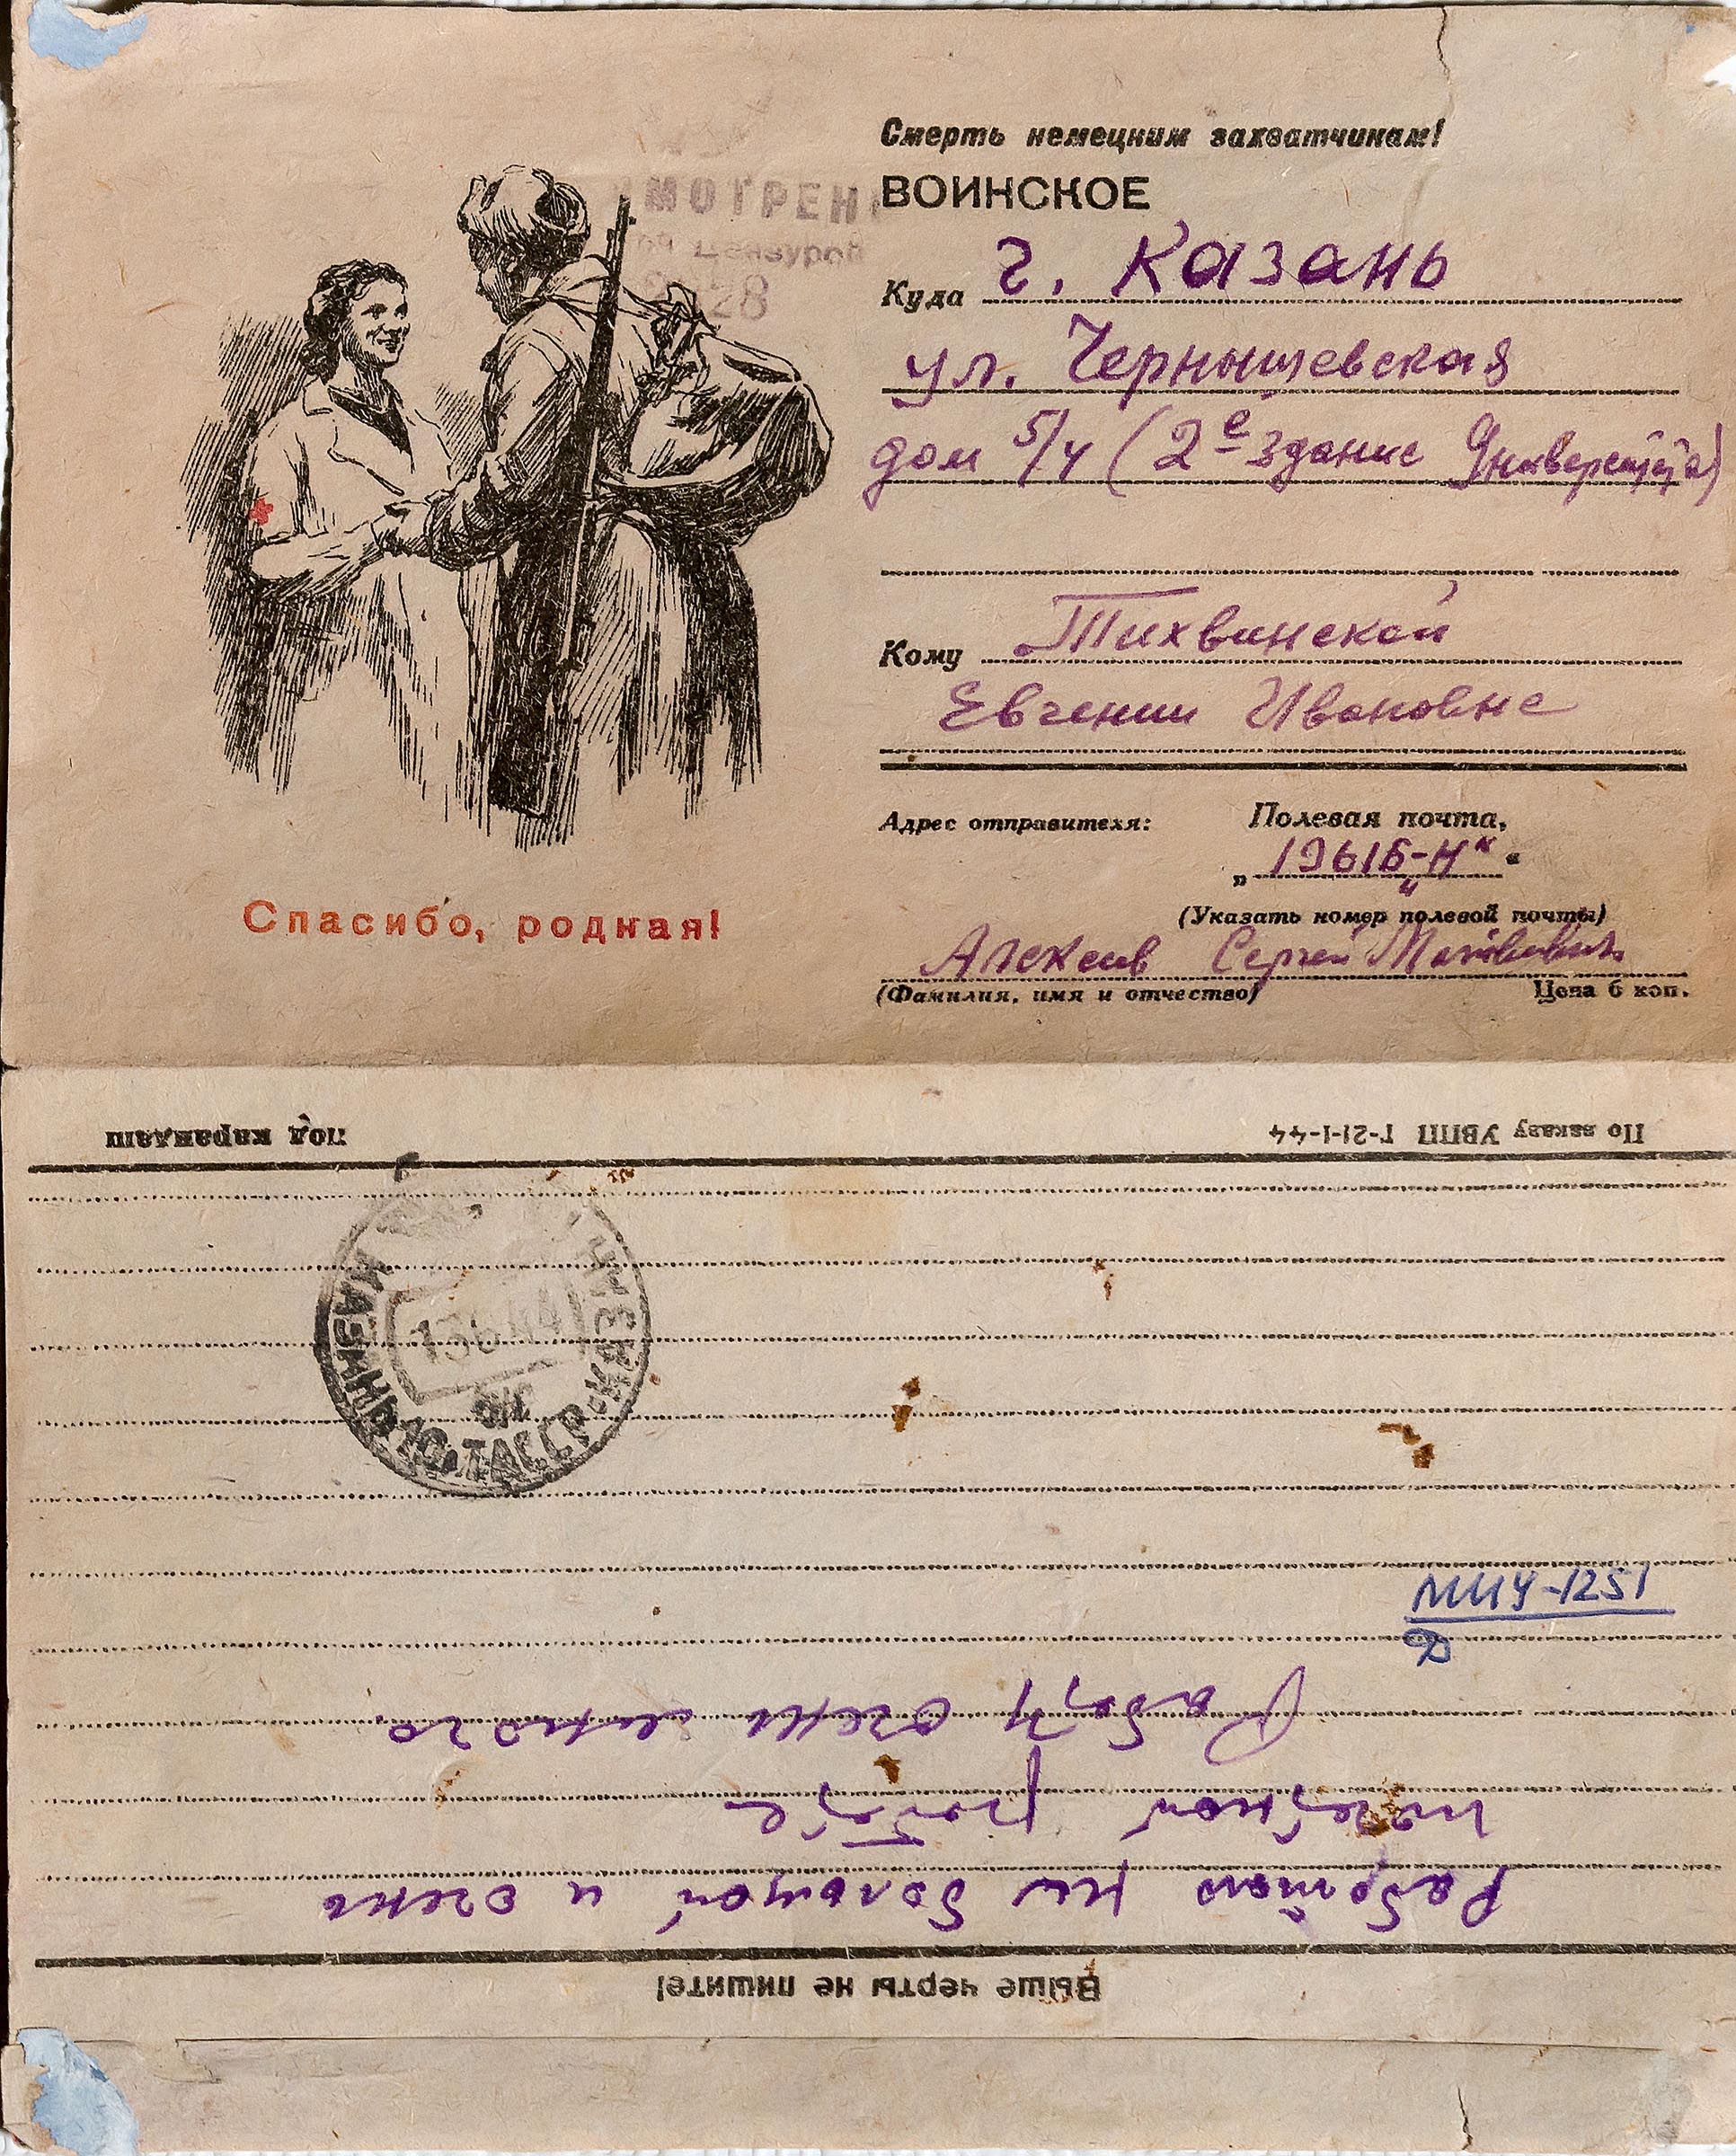 Смерть немецким захватчикам!
ВОИНСКОЕ
МОТРЕН
Цензурой
28
Куда г. Казань
ул. Чернышевская
дом 5/4 (2е здание Университета)
Кому Тихвинской
Евгении Ивановне
Адрес отправителя: Полевая почта,
„19616-Н“
(Указать номер полевой почты)
Алексеев Сергей Матвеевич
(Фамилия, имя и отчество) Цена 6 коп.
Спасибо, родная!
Выше черты не пишите!
Работаю на большой и очень
почетной работе
Работы очень много.
МПУ-1251
ТАССР КАЗАНЬ
13 6 44
По заказу УВПП Г-21-1-44 под карандаш